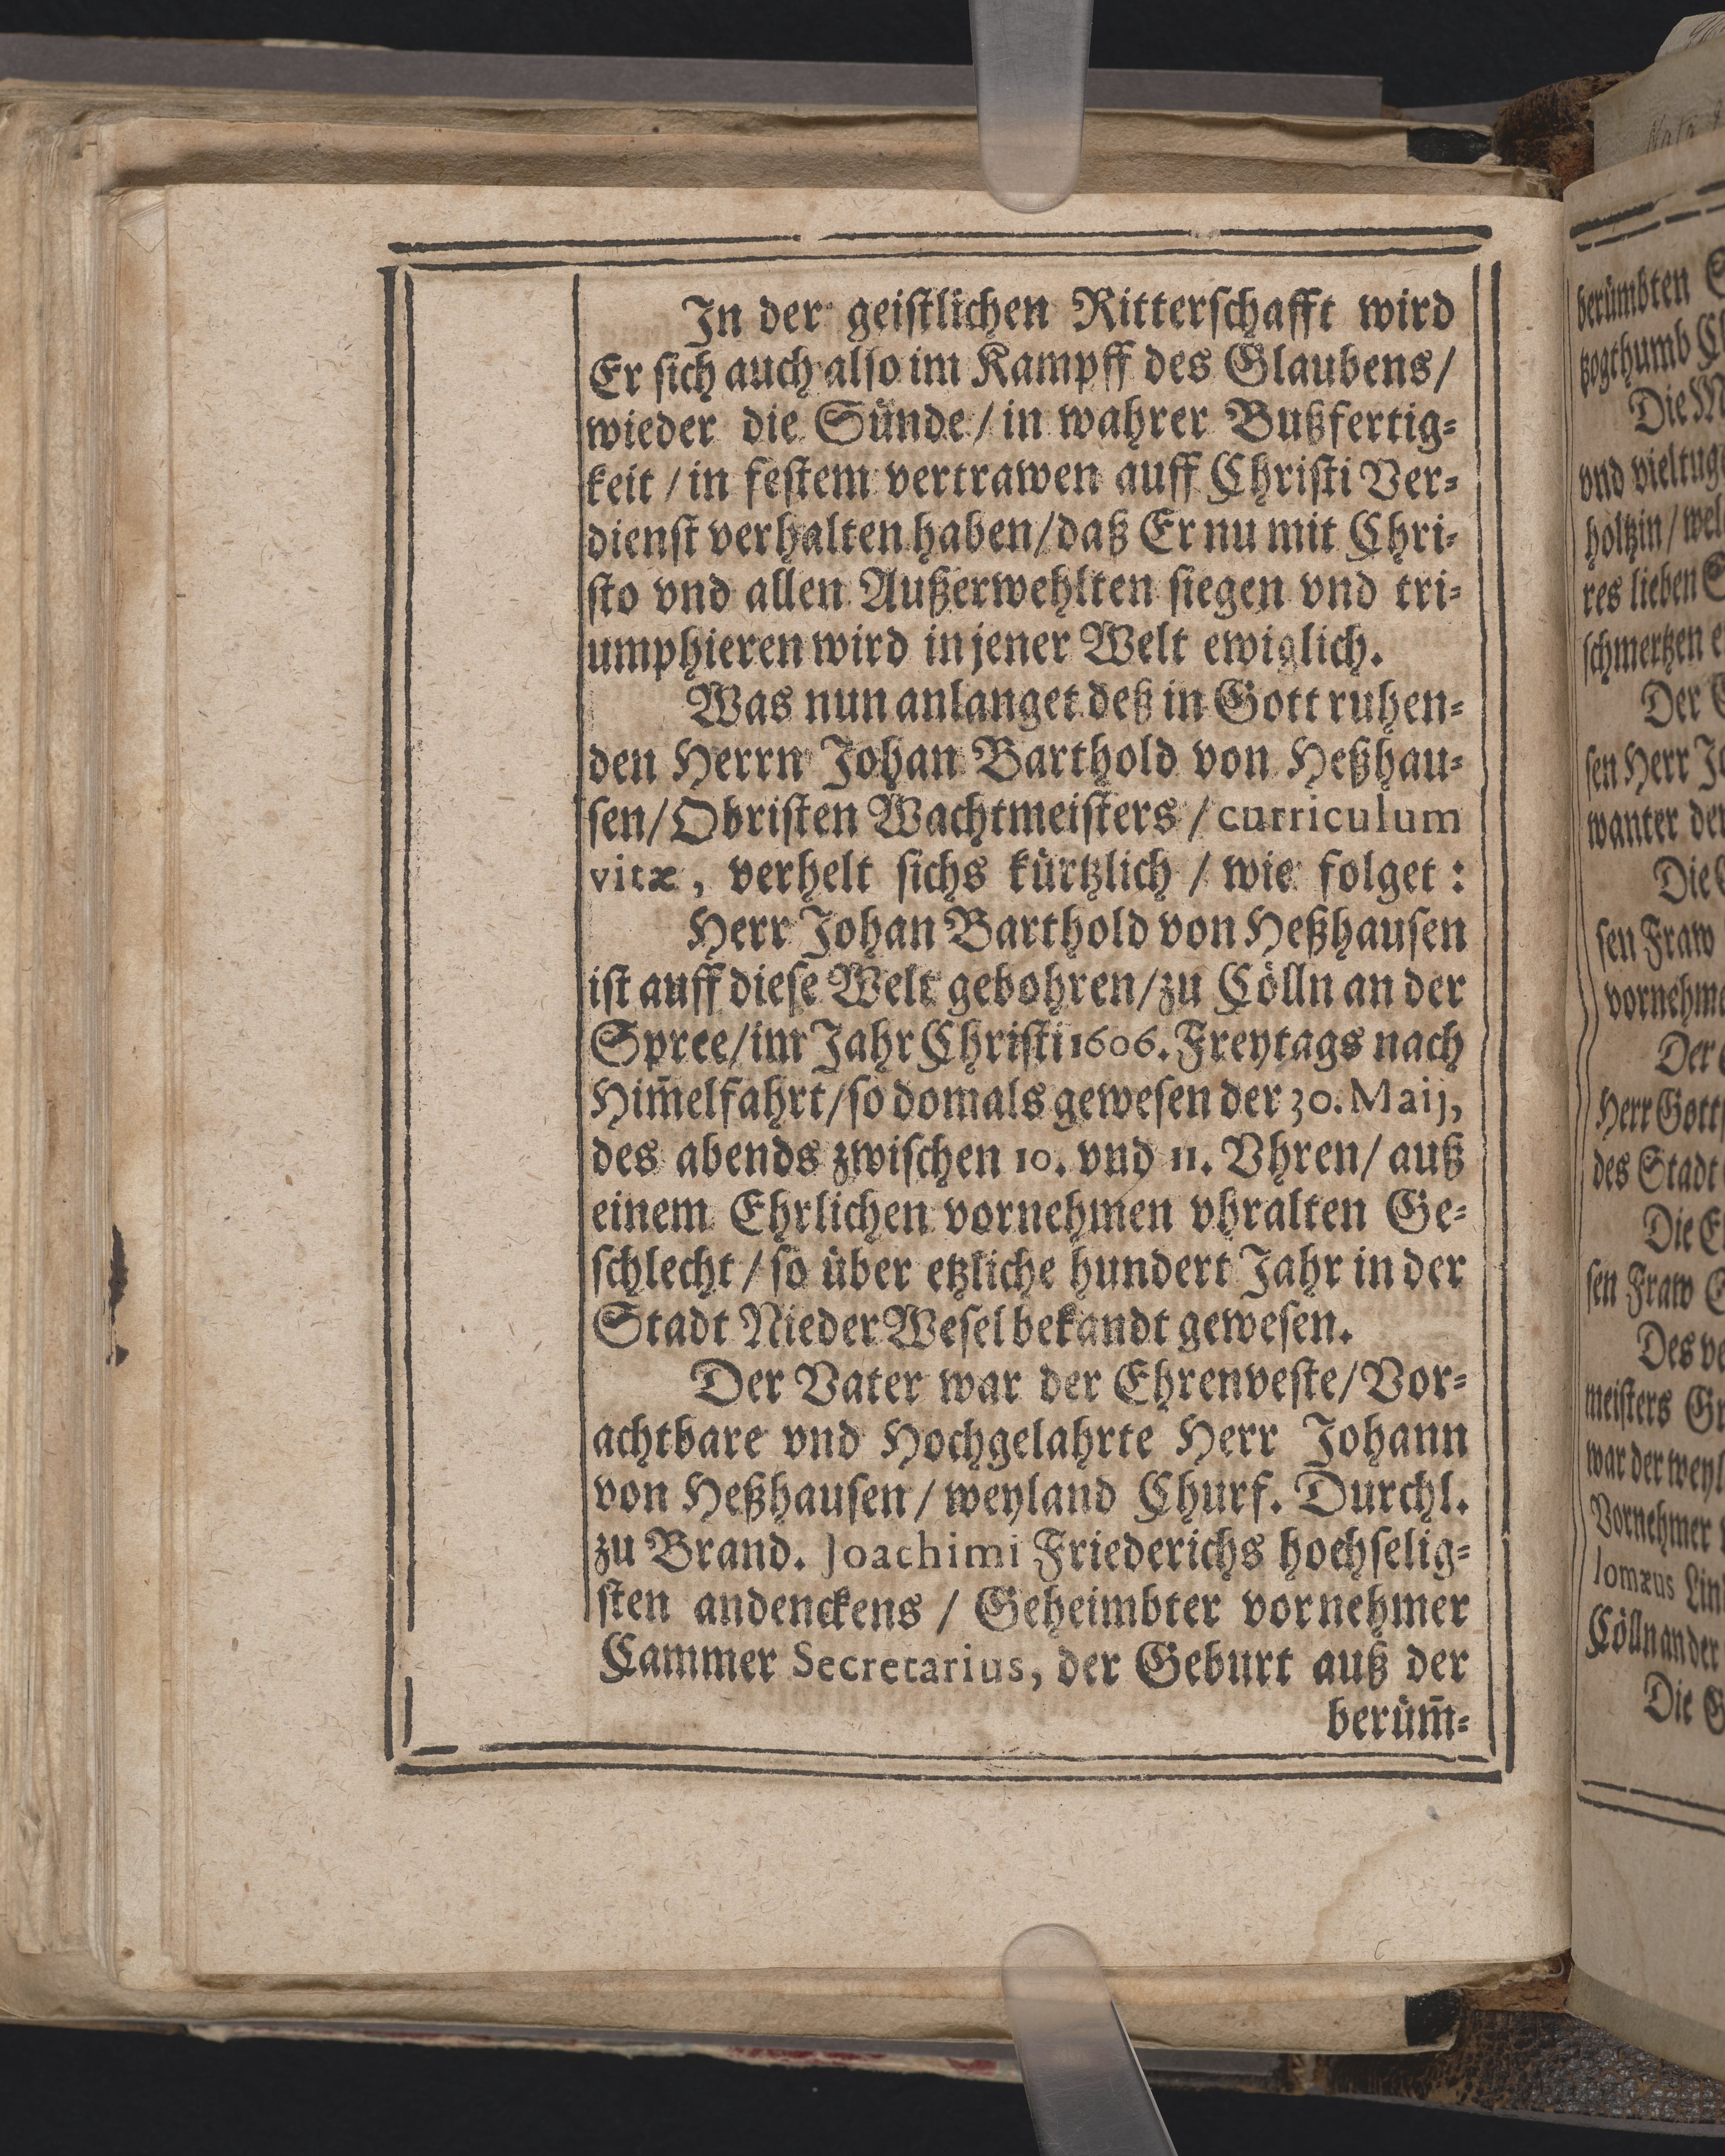 In der geistlichen Ritterschafft wird
Er sich auch also im Kampff des Glaubens/
wieder die Sünde/ in wahrer Bußfertig-
keit/ in festem vertrawen auff Christi Ver-
dienst verhalten haben/ daß Er nu mit Chri-
sto vnd allen Außerwehlten siegen vnd tri-
umphieren wird in jener Welt ewiglich.
Was nun anlanget deß in Gott ruhen-
den Herrn Johan Barthold von Heßhau-
sen/ Obristen Wachtmeisters/ curriculum
vitæ, verhelt sichs kürtzlich/ wie folget:
Herr Johan Barthold von Heßhausen
ist auff diese Welt gebohren/ zu Cölln an der
Spree/ im Jahr Christi 1606. Freytags nach
Him̃elfahrt/ so domals gewesen der 30. Maij,
des abends zwischen 10. vnd 11. Vhren/ auß
einem Ehrlichen vornehmen vhralten Ge-
schlecht/ so über etzliche hundert Jahr in der
Stadt Nieder Wesel bekandt gewesen.
Der Vater war der Ehrenveste/ Vor-
achtbare vnd Hochgelahrte Herr Johann
von Heßhausen/ weyland Churf. Durchl.
zu Brand. Joachimi Friederichs hochselig-
sten andenckens/ Geheimbter vornehmer
Cammer Secretarius, der Geburt auß der
berüm̃-
berümbten
tzogthumb
Die
vnd vieltug
holtzin/ wel
res lieben
schmertzen
Der
sen Herr
wanter der
Die
sen Fraw
vornehme
Der
Herr Gott
des Stadt
Die
sen Fraw
Des ve
meisters Gr
war der weyl
Vornehmer
lomæus Lin
Cölln an der
Die